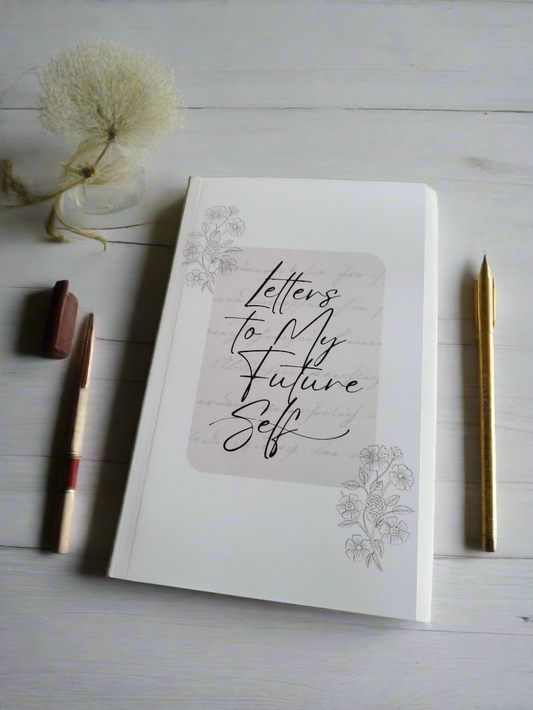 Letters
to My
Future
Self